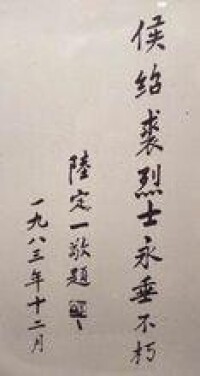 侯紹裘烈士永垂不朽
陸定一敬題
一九八三年十二月